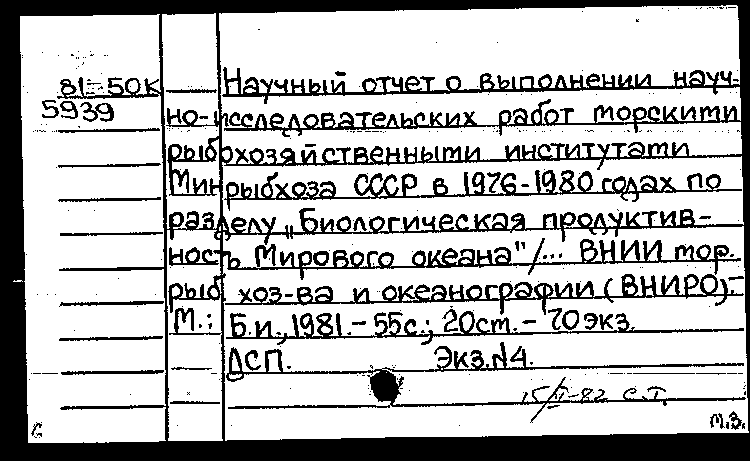 81-50К Научный отчет о выполнении науч-
5939 но-исследовательских работ морскими
рыбохозяйственными институтами
Минрыбхоза СССР в 1976-1980 годах по
разделу „Биологическая продуктив-
ность Мирового океана"/... ВНИИ мор.
рыб хоз-ва и океанографии (ВНИРО).-
М.: Б.и., 1981.- 55с.; 20см.- 70 экз.
ДСП. Экз.№4.
15/II-82 С.Т.
М.З.